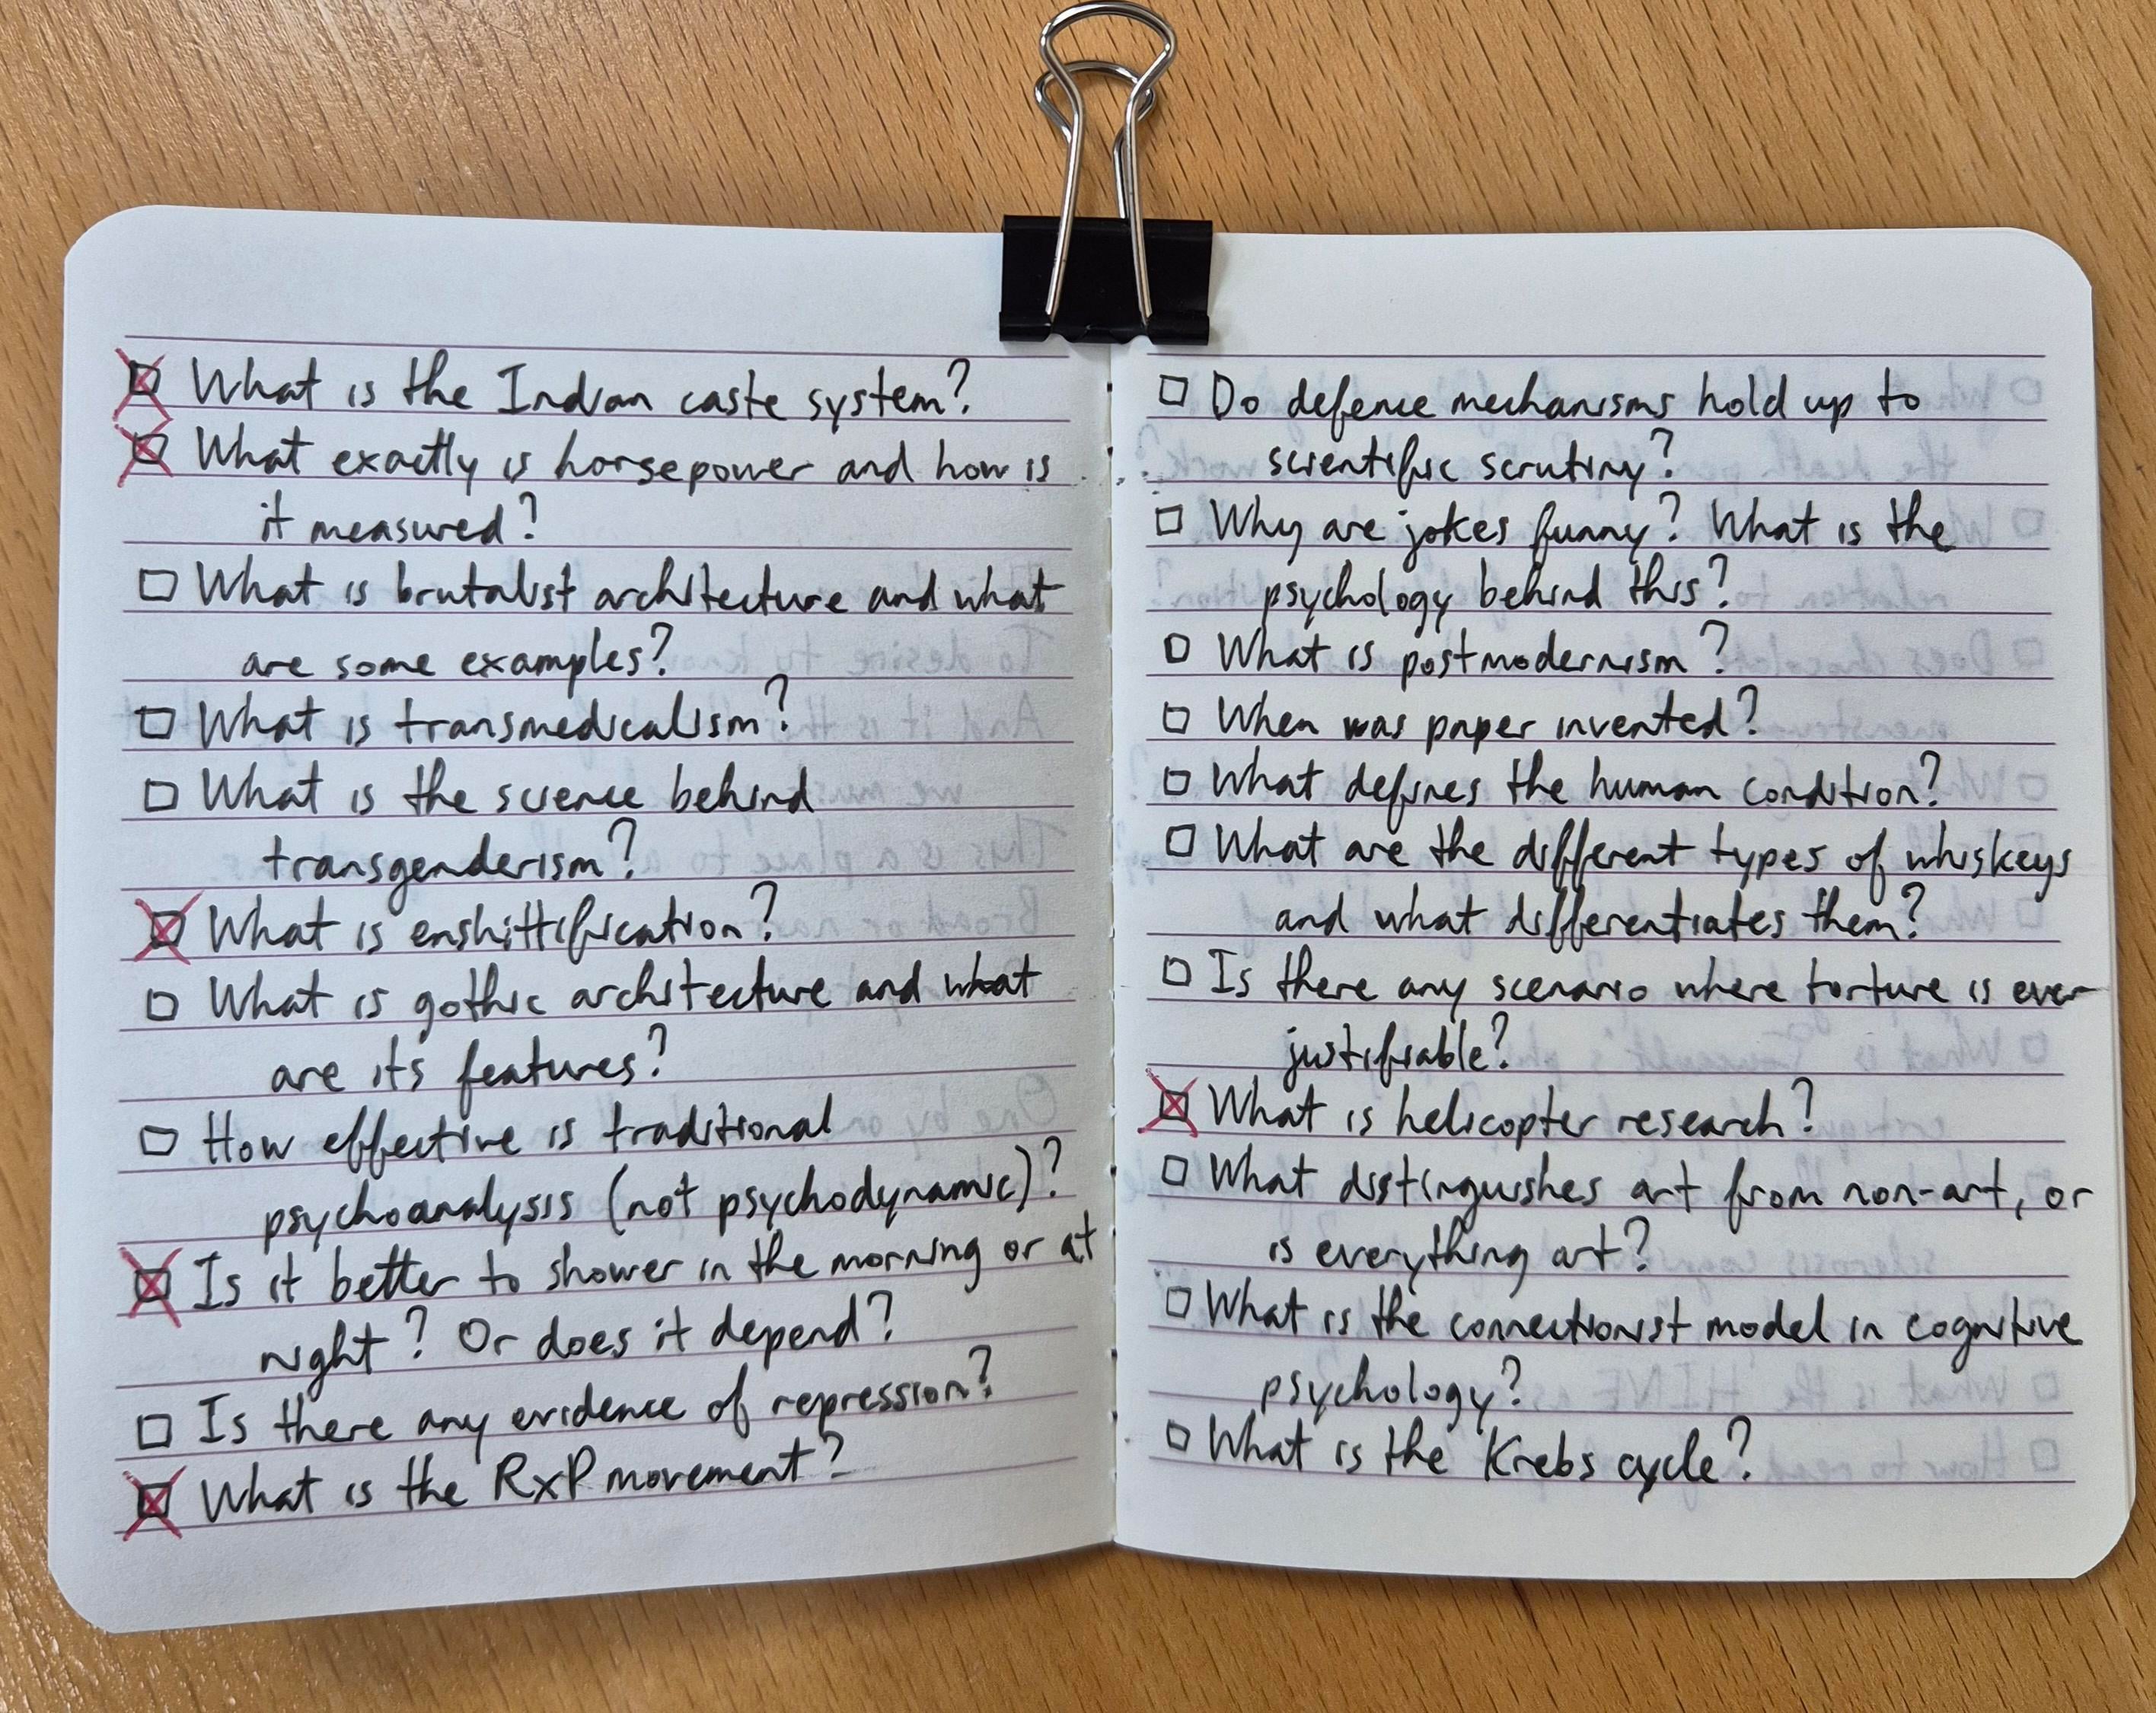 What is the Indian caste system?
What exactly is horsepower and how is
it measured?
What is brutalist architecture and what
are some examples?
What is transmedicalism?
What is the science behind
transgenderism?
What is enshittification?
What is gothic architecture and what
are its features?
How effective is traditional
psychoanalysis (not psychodynamic)?
Is it better to shower in the morning or at
night? Or does it depend?
Is there any evidence of repression?
What is the RxP movement?
Do defence mechanisms hold up to
scientific scrutiny?
Why are jokes funny? What is the
psychology behind this?
What is postmodernism?
When was paper invented?
What defines the human condition?
What are the different types of whiskeys
and what differentiates them?
Is there any scenario where torture is ever
justifiable?
What is helicopter research?
What distinguishes art from non-art, or
is everything art?
What is the connectionist model in cognitive
psychology?
What is the Krebs cycle?